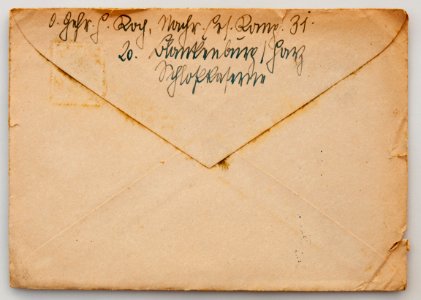 O. Gefr. H. Koch, Nachr. Ers. Komp. 31.
20. Blankenburg/Harz
Schloßkaserne